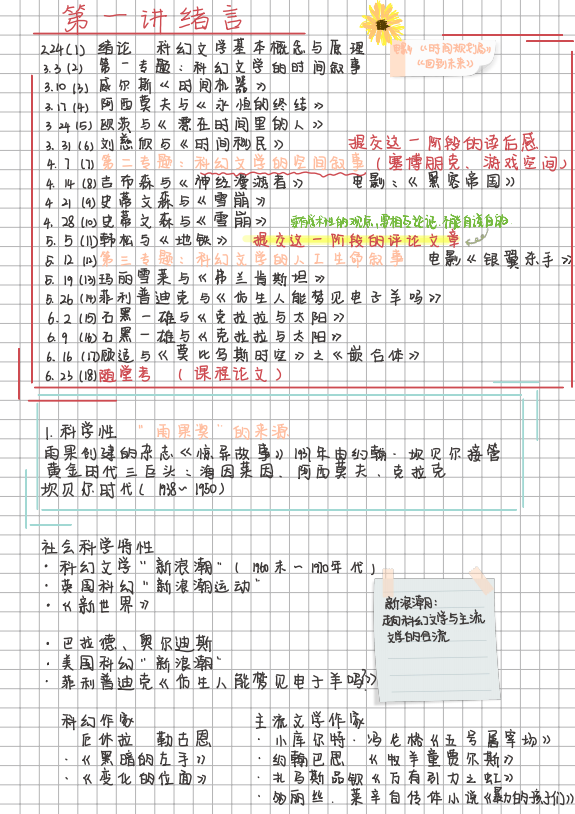 第一讲绪言
电影《时间规划局》
《回到未来》
2.24(1) 绪论 科幻文学基本概念与原理
3.3(2) 第一专题:科幻文学的时间叙事
3.10(3) 威尔斯《时间机器》
3.17(4) 阿西莫夫与《永恒的终结》
3.24(5) 欧茨与《漂在时间里的人》
3.31(6) 刘慈欣与《时间移民》 提交这一阶段的读后感
4.7(7) 第二专题:科幻文学的空间叙事(塞博朋克、游戏空间)
4.14(8) 吉布森与《神经漫游者》 电影:《黑客帝国》
4.21(9) 史蒂文森与《雪崩》
4.28(10) 史蒂文森与《雪崩》
5.5(11) 韩松与《地铁》 提交这一阶段的评论文章
5.12(12) 第三专题:科幻文学的人工生命叙事 电影《银翼杀手》
5.19(13) 玛丽雪莱与《弗兰肯斯坦》
5.26(14) 菲利普迪克与《仿生人能梦见电子羊吗》
6.2(15) 石黑一雄与《克拉拉与太阳》
6.9(16) 石黑一雄与《克拉拉与太阳》
6.16(17) 顾适与《莫比乌斯时空》之《嵌合体》
6.23(18) 随堂考 (课程论文)
1.科学性 "雨果奖"的来源
雨果创建的杂志《惊异故事》1937年由约翰·坎贝尔接管
黄金时代三巨头:海因莱因、阿西莫夫、克拉克
坎贝尔时代(1938~1950)
社会科学特性
·科幻文学"新浪潮"(1960末~1970年代)
·英国科幻"新浪潮运动"
·《新世界》
·巴拉德、奥尔迪斯
·美国科幻"新浪潮"
·菲利普迪克《仿生人能梦见电子羊吗?》
新浪潮:
走向科幻文学与主流
文学的合流
科幻作家
厄休拉 勒古恩
·《黑暗的左手》
·《变化的位面》
主流文学作家
·小库尔特·冯尼格《五号屠宰场》
·约翰巴思 《牧羊童贾尔斯》
·托马斯品钦《万有引力之虹》
·多丽丝.莱辛自传体小说《暴力的孩子们》